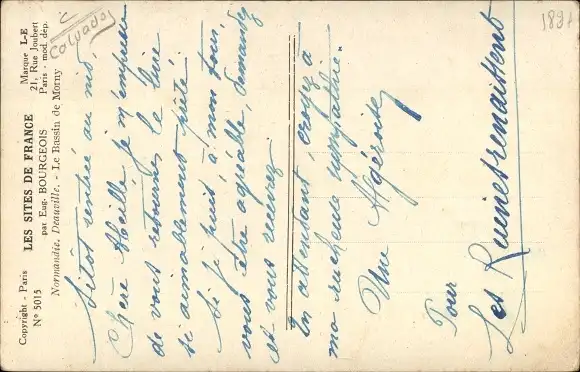 Calvados
1891
Marque L-E
21, Rue Joubert
Paris - mod. dép.
LES SITES DE FRANCE
par Eug. BOURGEOIS
Normandie. Deauville. - Le Bassin de Morny
Copyright - Paris
N° 5015
Sitôt rentrée au nid,
Chère Abeille je m'empresse
de vous retourner le livre
si aimablement prêté
Si je puis, à mon tour,
vous être agréable, demandez
et vous recevrez
En attendant, croyez à
ma rucheuse sympathie.
Une
Pour
Les Ruines renaissent